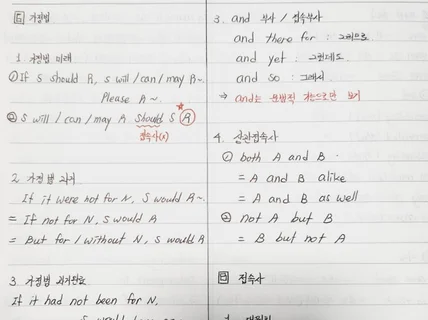 가정법
1. 가정법 미래
① If S should R, S will / can / may R ~.
Please R ~.
② S will / can / may R should S R
접속사(x)
2. 가정법 과거
If it were not for N, S would R ~.
= If not for N, S would R
= But for / without N, S would R
3. 가정법 과거완료
If it had not been for N,
3. and 부사 / 접속부사
and there for : 그러므로
and yet : 그런데도
and so : 그래서
⇒ and는 문법적 기능으로만 보기
4. 상관접속사
① both A and B
= A and B alike
= A and B as well
② not A but B
= B but not A
접속사